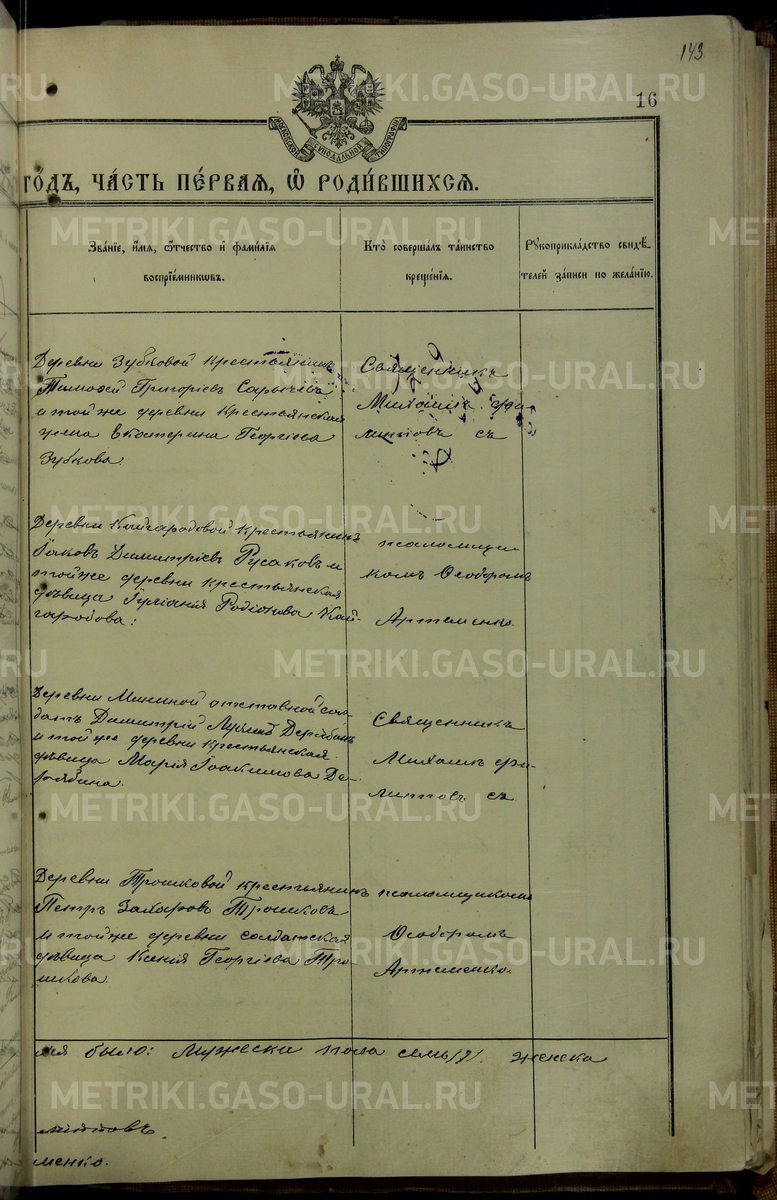 143
16
МОСКОВСКОЙ СѴНОДАЛЬНОЙ ТИПОГРАФІИ
го́дъ, ча́сть пе́рвая, ѡ҆ роди́вшихся.
Зва́нїе, и҆́мя, ѻ҆́тчество и҆ фами́лїя
воспрїе́мникѡвъ.
Кто̀ соверша́лъ та́инство
креще́нїя.
Рꙋкоприкла́дство свидѣ́-
телей за́писи по жела́нїю.
Деревни Зубковой крестьянинъ
Тимофей Григоріевъ Сарычевъ
и той же деревни крестьянская
жена Екатерина Георгіева
Зубкова.
Священникъ
Михаилъ Фи-
липповъ съ
Деревни Кайгародовой крестьянинъ
Іаковъ Димитріевъ Русаковъ и
той же деревни крестьянская
дѣвица Іуліанія Родіонова Кай-
гародова:
псаломщи-
комъ Ѳеодоромъ
Артеменко.
Деревни Мининой отставной сол-
датъ Димитрій Дерябинъ
и той же деревни крестьянская
дѣвица Марія Іоакимова Де-
рябина.
Священникъ
Михаилъ Фи-
липповъ съ
Деревни Трошковой крестьянинъ
Петръ Захаровъ Трошковъ
и той же деревни солдатская
дѣвица Ксенія Георгіева Тро-
шкова.
псаломщикомъ
Ѳеодоромъ
Артеменко.
было: мужеска пола семь /7/. женска
липповъ.
менко.
METRIKI.GASO-URAL.RU